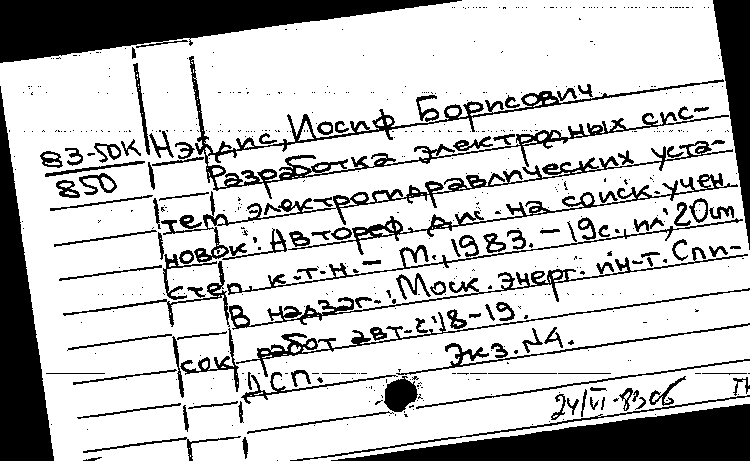 83-50К Нэйдис, Иосиф Борисович.
850 Разработка электродных сис-
тем электрогидравлических уста-
новок: Автореф. дис. на соиск. учен.
степ. к.т.н. – М., 1983. – 19с., ил; 20см
В надзаг.: Моск. энерг. ин-т. Спи-
сок работ авт. с. 18-19.
ДСП. Экз. №4.
24/VI-83